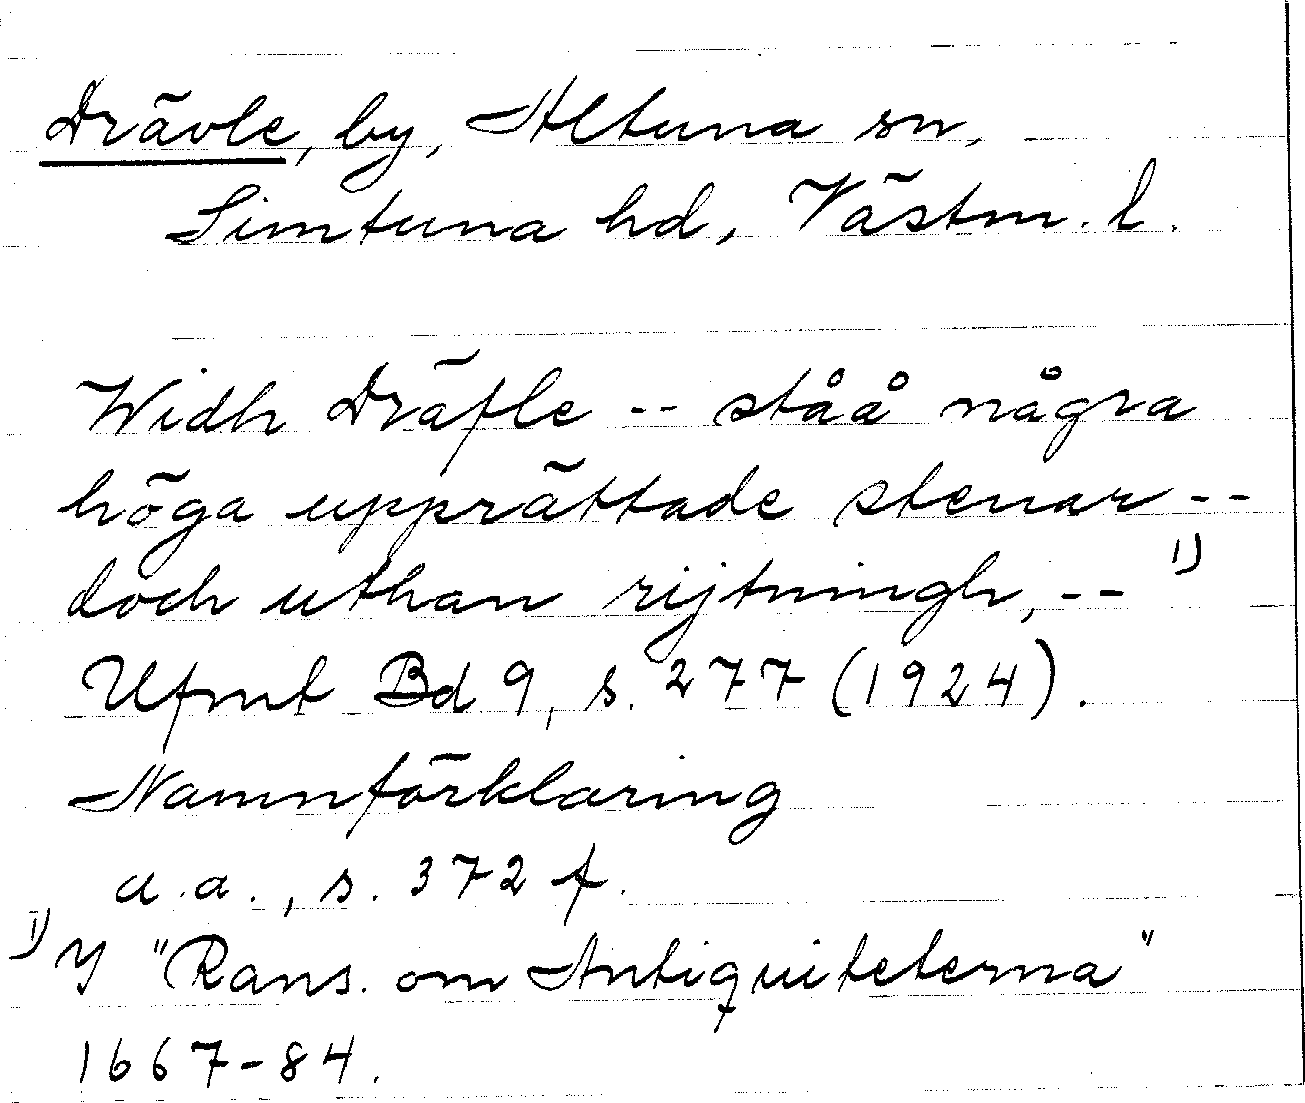 Drävle, by, Altuna sn,
Simtuna hd, Västm. l.
Widh Dräfle -- ståå några
höga upprättade stenar --
doch uthan rijtningh, -- 1)
Ufmt Bd 9, s. 277 (1924).
Namnförklaring
a.a., s. 372 f.
1) Y "Rans. om Antiquiteterna"
1667-84.